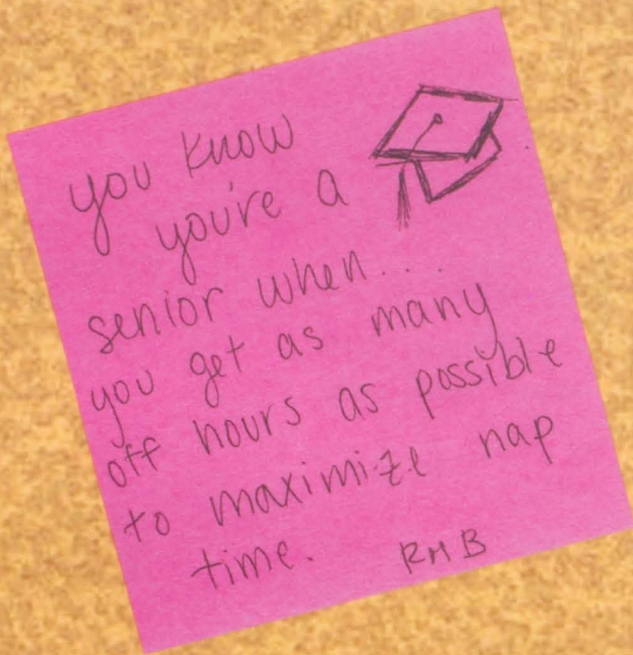 you know
you're a
senior when...
you get as many
off hours as possible
to maximize nap
time. RMB